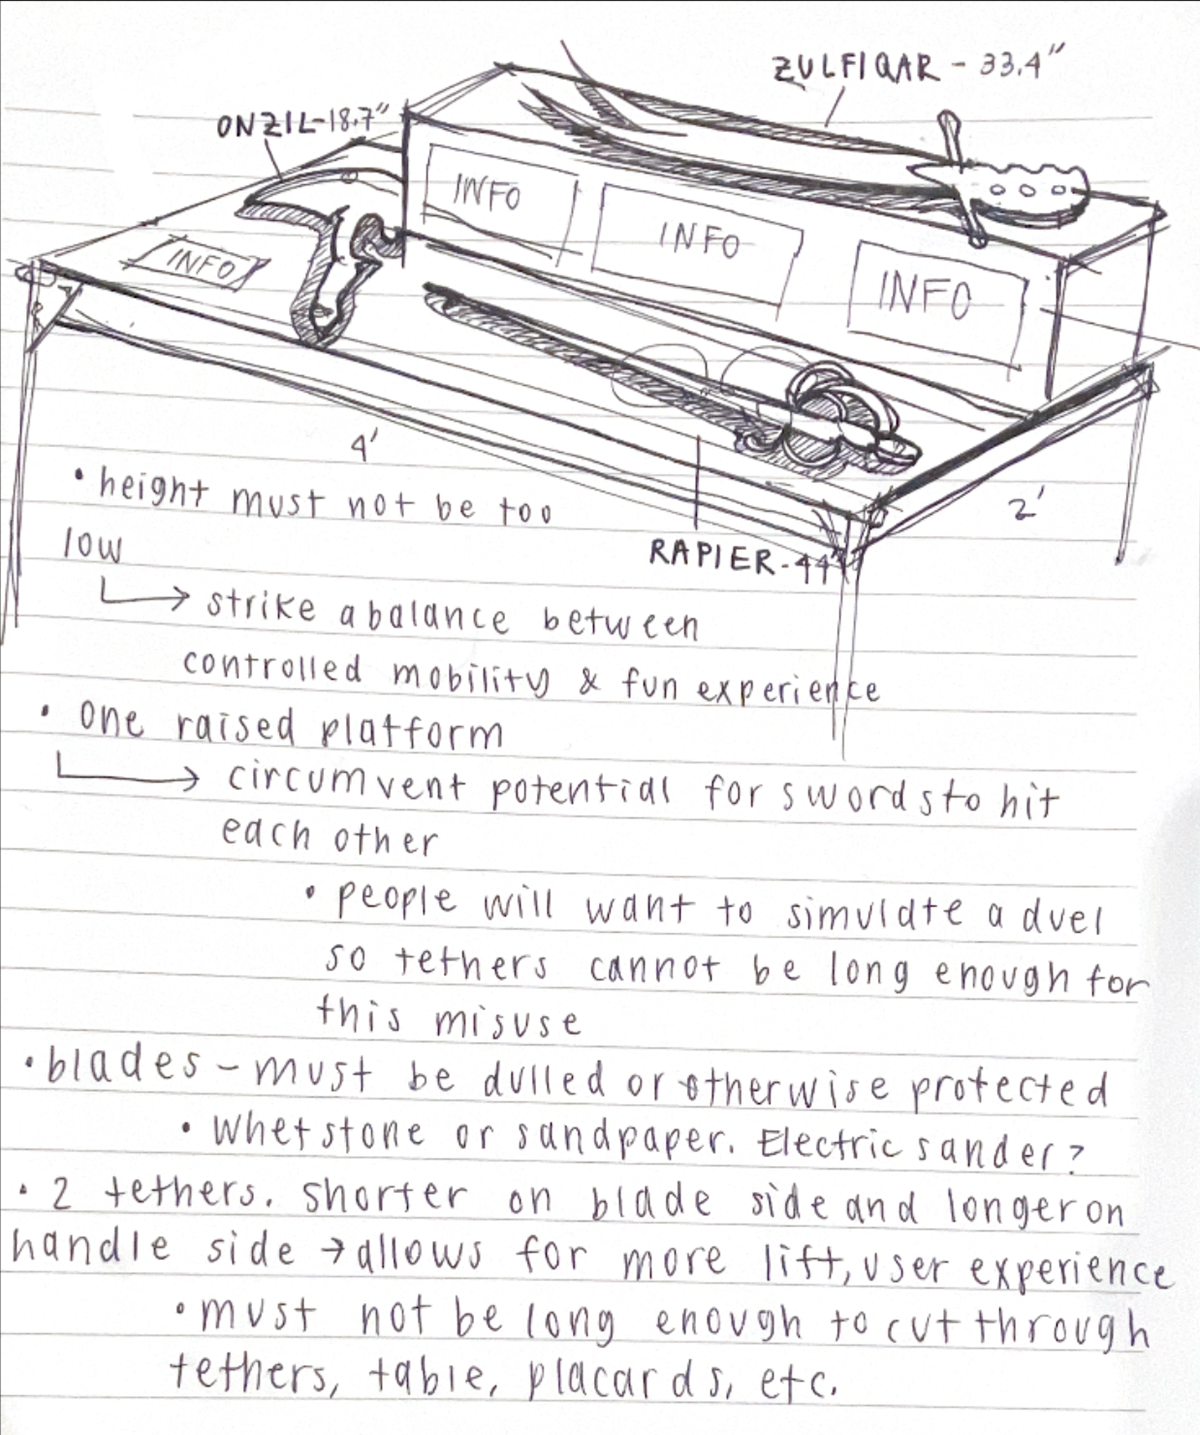 ZULFIQAR - 33.4"
ONZIL-18.7"
INFO
INFO
INFO
INFO
4'
2'
RAPIER-44"
• height must not be too
low
→ strike a balance between
controlled mobility & fun experience
• one raised platform
→ circumvent potential for swords to hit
each other
• people will want to simulate a duel
so tethers cannot be long enough for
this misuse
• blades - must be dulled or otherwise protected
• whetstone or sandpaper. Electric sander?
• 2 tethers. shorter on blade side and longer on
handle side → allows for more lift, user experience
• must not be long enough to cut through
tethers, table, placards, etc.